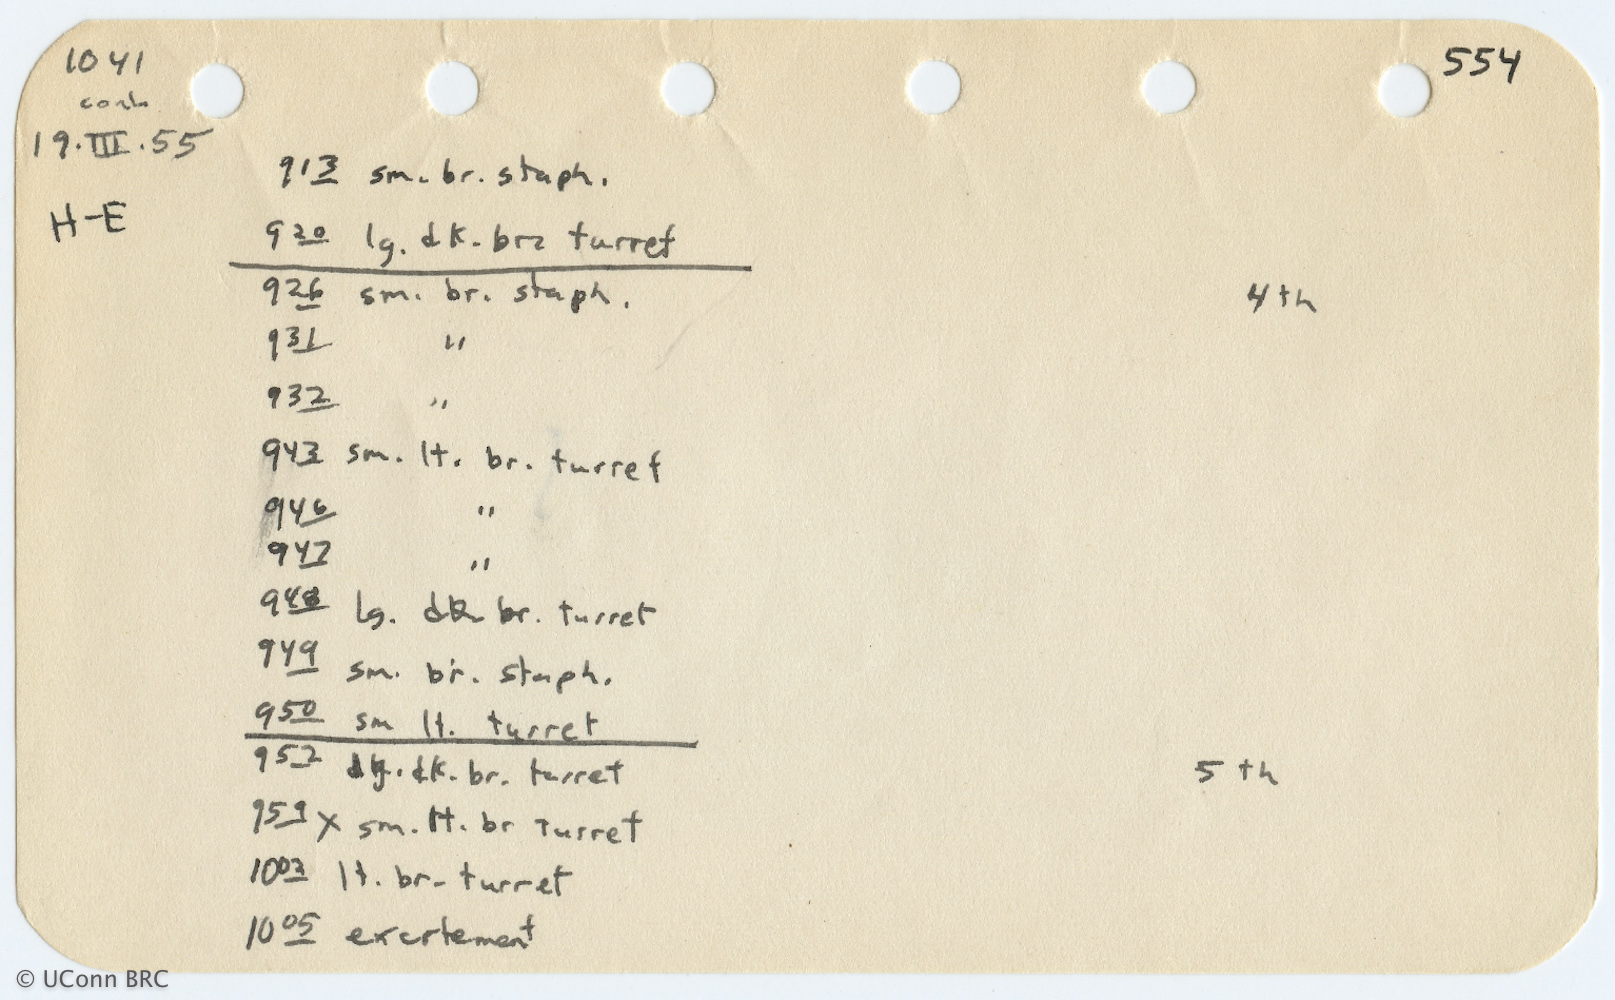 1041
cont.
554
19.III.55
H-E
913 sm. br. staph.
920 lg. dk. br. turret
926 sm. br. staph. 4th
931 "
932 "
943 sm. lt. br. turret
946 "
947 "
948 lg. dk br. turret
949 sm. br. staph.
950 sm lt. turret
952 lg. dk. br. turret 5th
959 x sm. lt. br turret
1003 lt. br. turret
1005 excitement
© UConn BRC